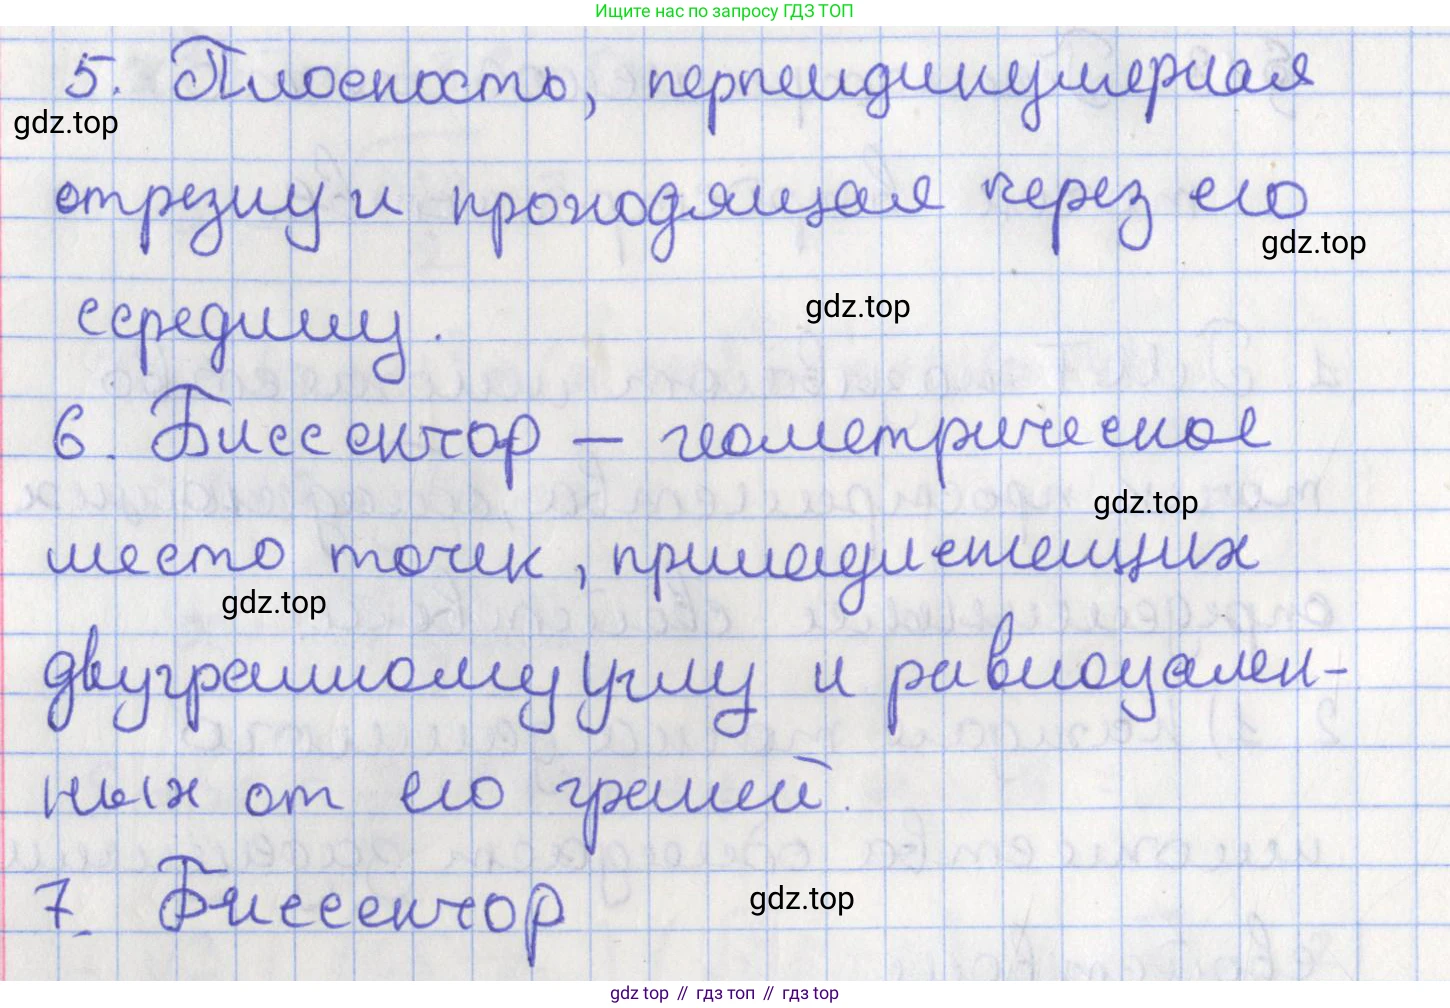 Ищите нас по запросу ГДЗ ТОП
5. Плоскость, перпендикулярная
gdz.top
отрезку и проходящая через его
gdz.top
середину.
gdz.top
6. Биссектор – геометрическое
gdz.top
место точек, принадлежащих
gdz.top
двугранному углу и равноудален-
ных от его граней.
7. Биссектор
gdz.top
gdz top // гдз топ // гдз top